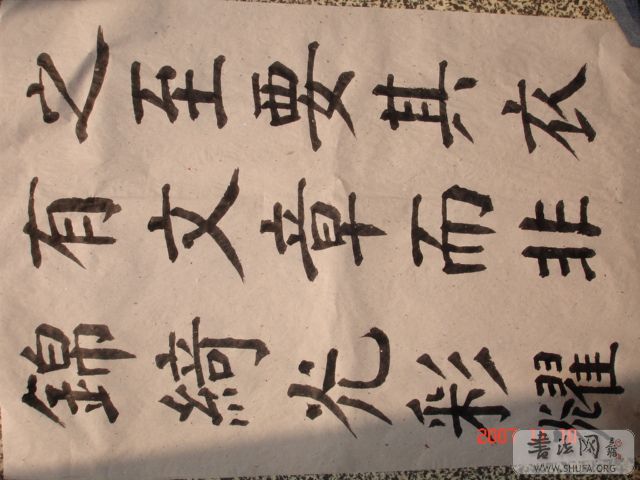 之至要其衣
有文章而非
錦綺光彩耀
2007
书法网
WWW.SHUFA.ORG